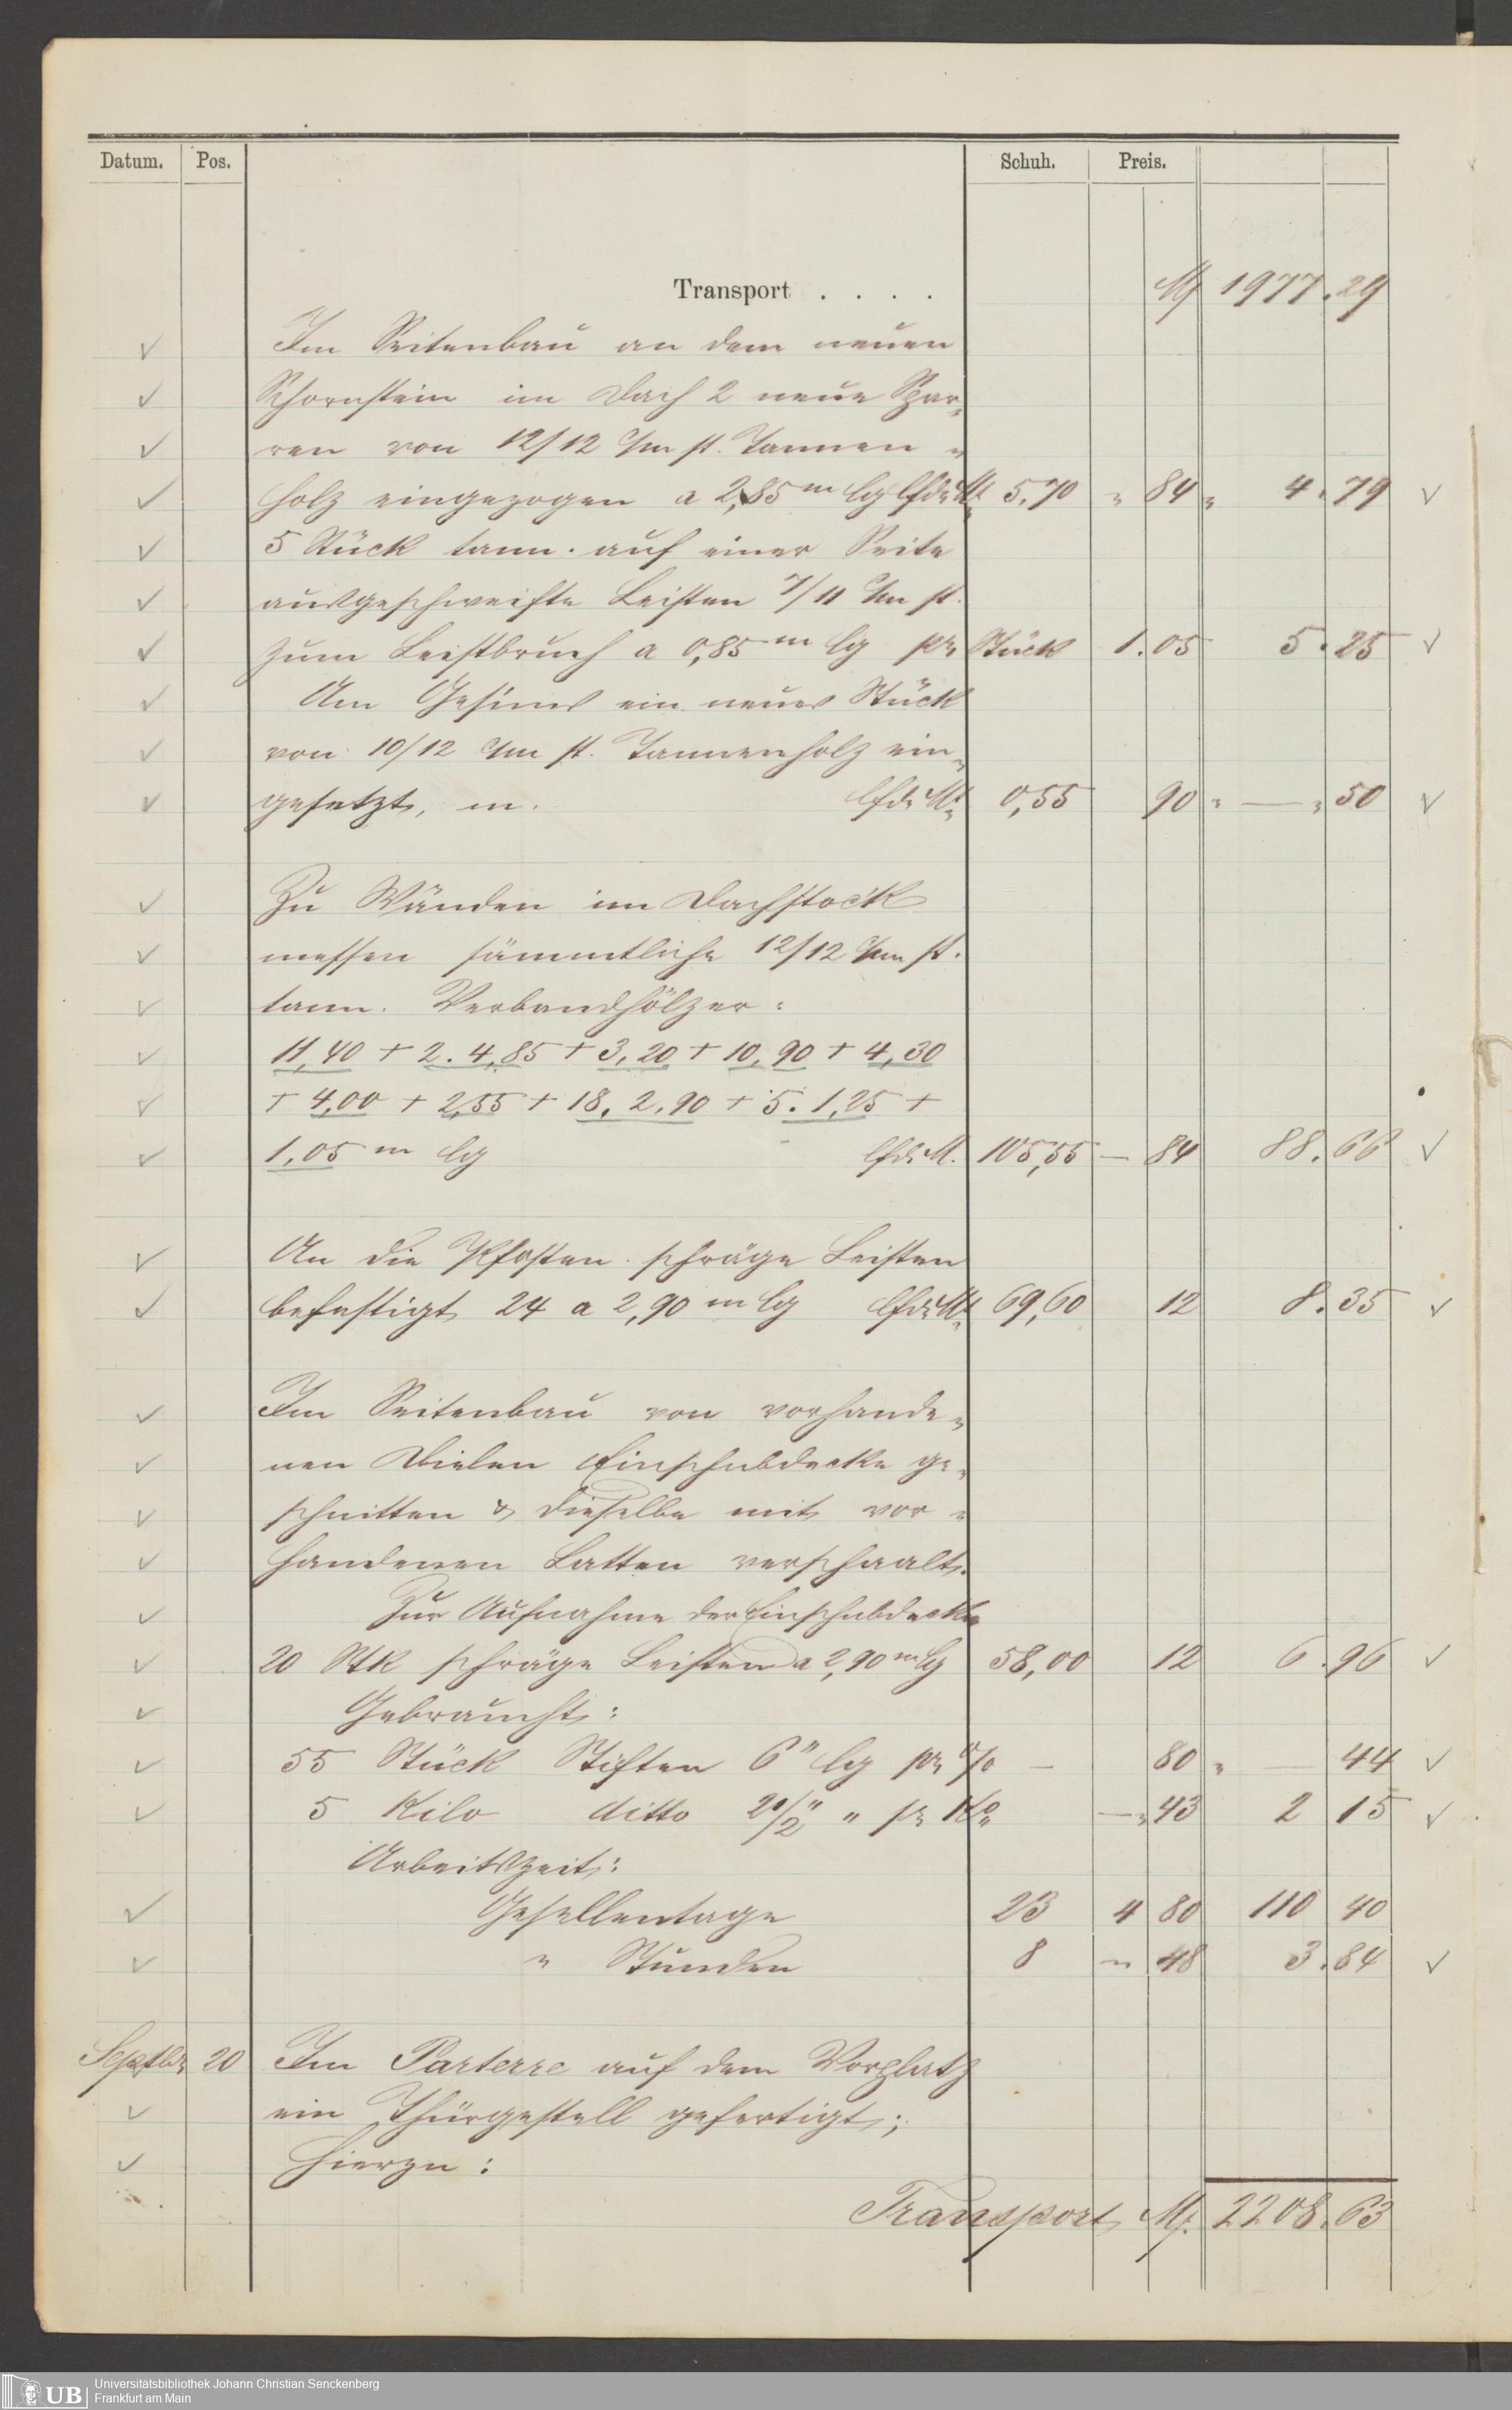 Datum. Pos. Schuh. Preis.
Transport . . . . M 1977.29
Im Seitenbau an dem neuen
Schornstein im Dach 2 neue Spar„
ren von 12/12 c/m st. Tannen „
holz eingezogen a 2,85 m lg lfd. M. 5.70 „ 84 „ 4.79
5 Stück tann. auf einer Seite
ausgeschweifte Leisten 7/11 c/m st.
zum Leistbruch a 0,85 m lg pr. Stück 1.05 5.25
Am Gesims ein neues Stück
von 10/12 c/m st. Tannenholz ein„
gesetzt, m. lfd. M. 0,55 90 „ — „ 50
Zu Wänden im Dachstock
messen sämmtliche 12/12 c/m st.
tann. Verbandhölzer:
11,40 + 2. 4,85 + 3,20 + 10,90 + 4,30
+ 4,00 + 2,55 + 18. 2.90 + 5. 1,25 +
1,05 m lg lfd. M. 105,55 — 84 88.66
An die Pfosten schräge Leisten
befestigt 24 a 2,90 m lg lfd. M. 69,60 12 8.35
Im Seitenbau von vorhande„
nen Dielen Einschubdecke ge„
schnitten & dieselbe mit vor„
handenen Latten verschaalt.
Zur Aufnahme der Einschubdecke
20 Stk schräge Leisten a 2,90 m lg 58,00 12 6.96
Gebraucht:
55 Stück Stiften 6" lg pr. % — 80 „ — 44
5 Kilo ditto 2 1/2" " pr. Ko — „ 43 2 15
Arbeitszeit:
Gesellentage 23 4 80 110 40
„ Stunden 8 „ 48 3.84
Septbr. 20 Im Parterre auf dem Vorplatz
ein Thürgestell gefertigt;
hierzu:
Transport M. 2208.63
UB Universitätsbibliothek Johann Christian Senckenberg
Frankfurt am Main